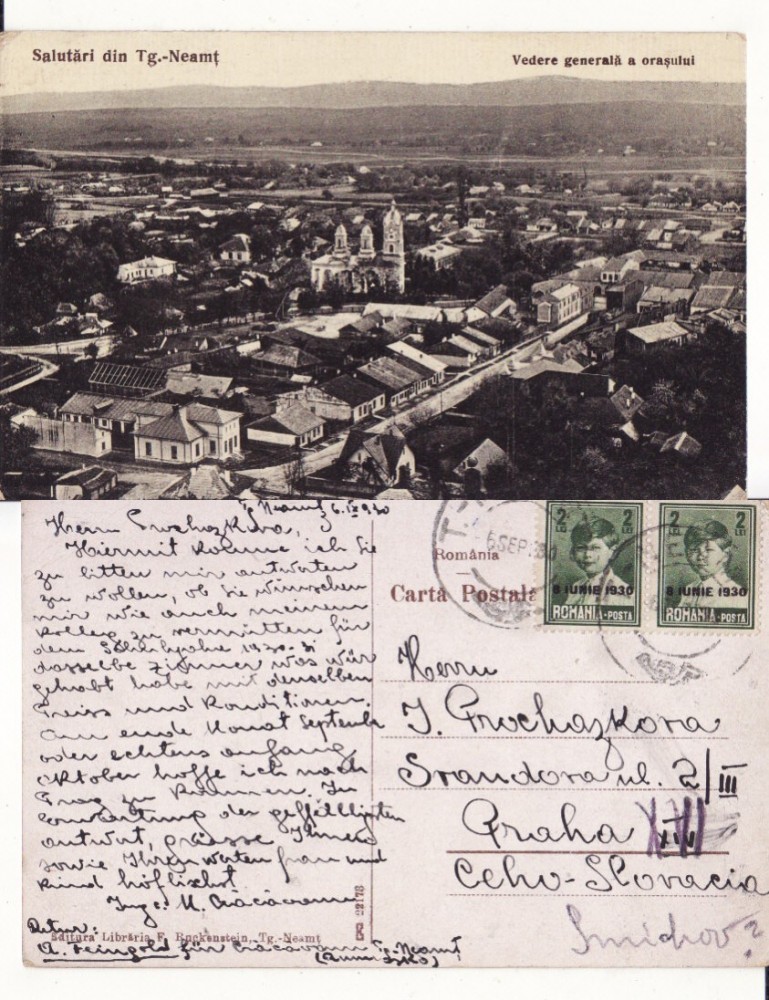 Salutări din Tg.-Neamț
Vedere generală a orașului
Tg. Neamț, 6. IX 930
Herrn Prochazkova,
Hiermit komme ich Sie
zu bitten mir antworten
zu wollen, ob Sie wünschen
mir wie auch meinem
Kolleg zu vermitten für
dem Schuljahre 1930-31
dasselbe Zimmer was wir
gehabt habe mit denselben
Preiss und Konditionen.
Am ende Monat September
oder echtens anfang
Oktober hoffe ich nach
Prag zu kommen. In
der gefälligsten
antwort, grüsse Ihnen
sowie Ihrer werten frau und
Kind höflichst
Ing: M.
Retur:
A. Feingold für Tg. Neamț
Editura Librăriei F. Ruckenstein, Tg.-Neamț
22173
România
Carta Postală
6 SEP. 930
2 LEI 2 LEI
8 IUNIE 1930
ROMANIA-POSTA
2 LEI 2 LEI
8 IUNIE 1930
ROMANIA-POSTA
Herrn
J. Prochazkova
Svandova ul. 2/III
Praha XVI
Ceho-Slovacia
Smichov?